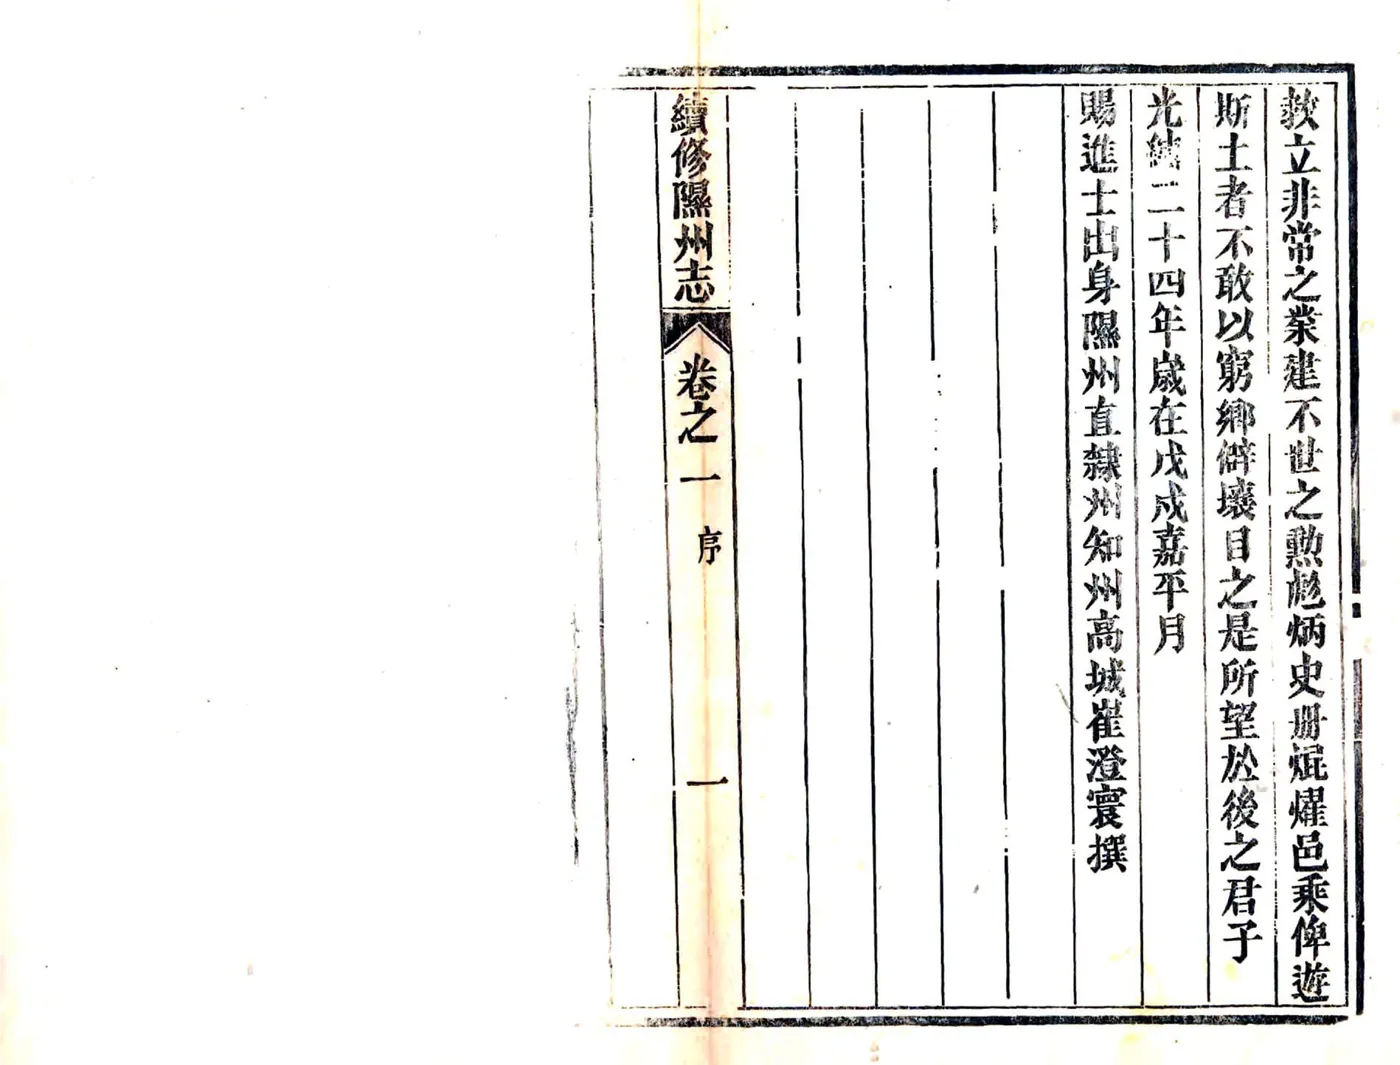 教立非常之業建不世之勲彪炳史册焜燿邑乘俾遊
斯土者不敢以窮鄉僻壤目之是所望於後之君子
光緒二十四年歲在戊戌嘉平月
賜進士出身隰州直隸州知州高城崔澄寰撰
續修隰州志
卷之一
序
一